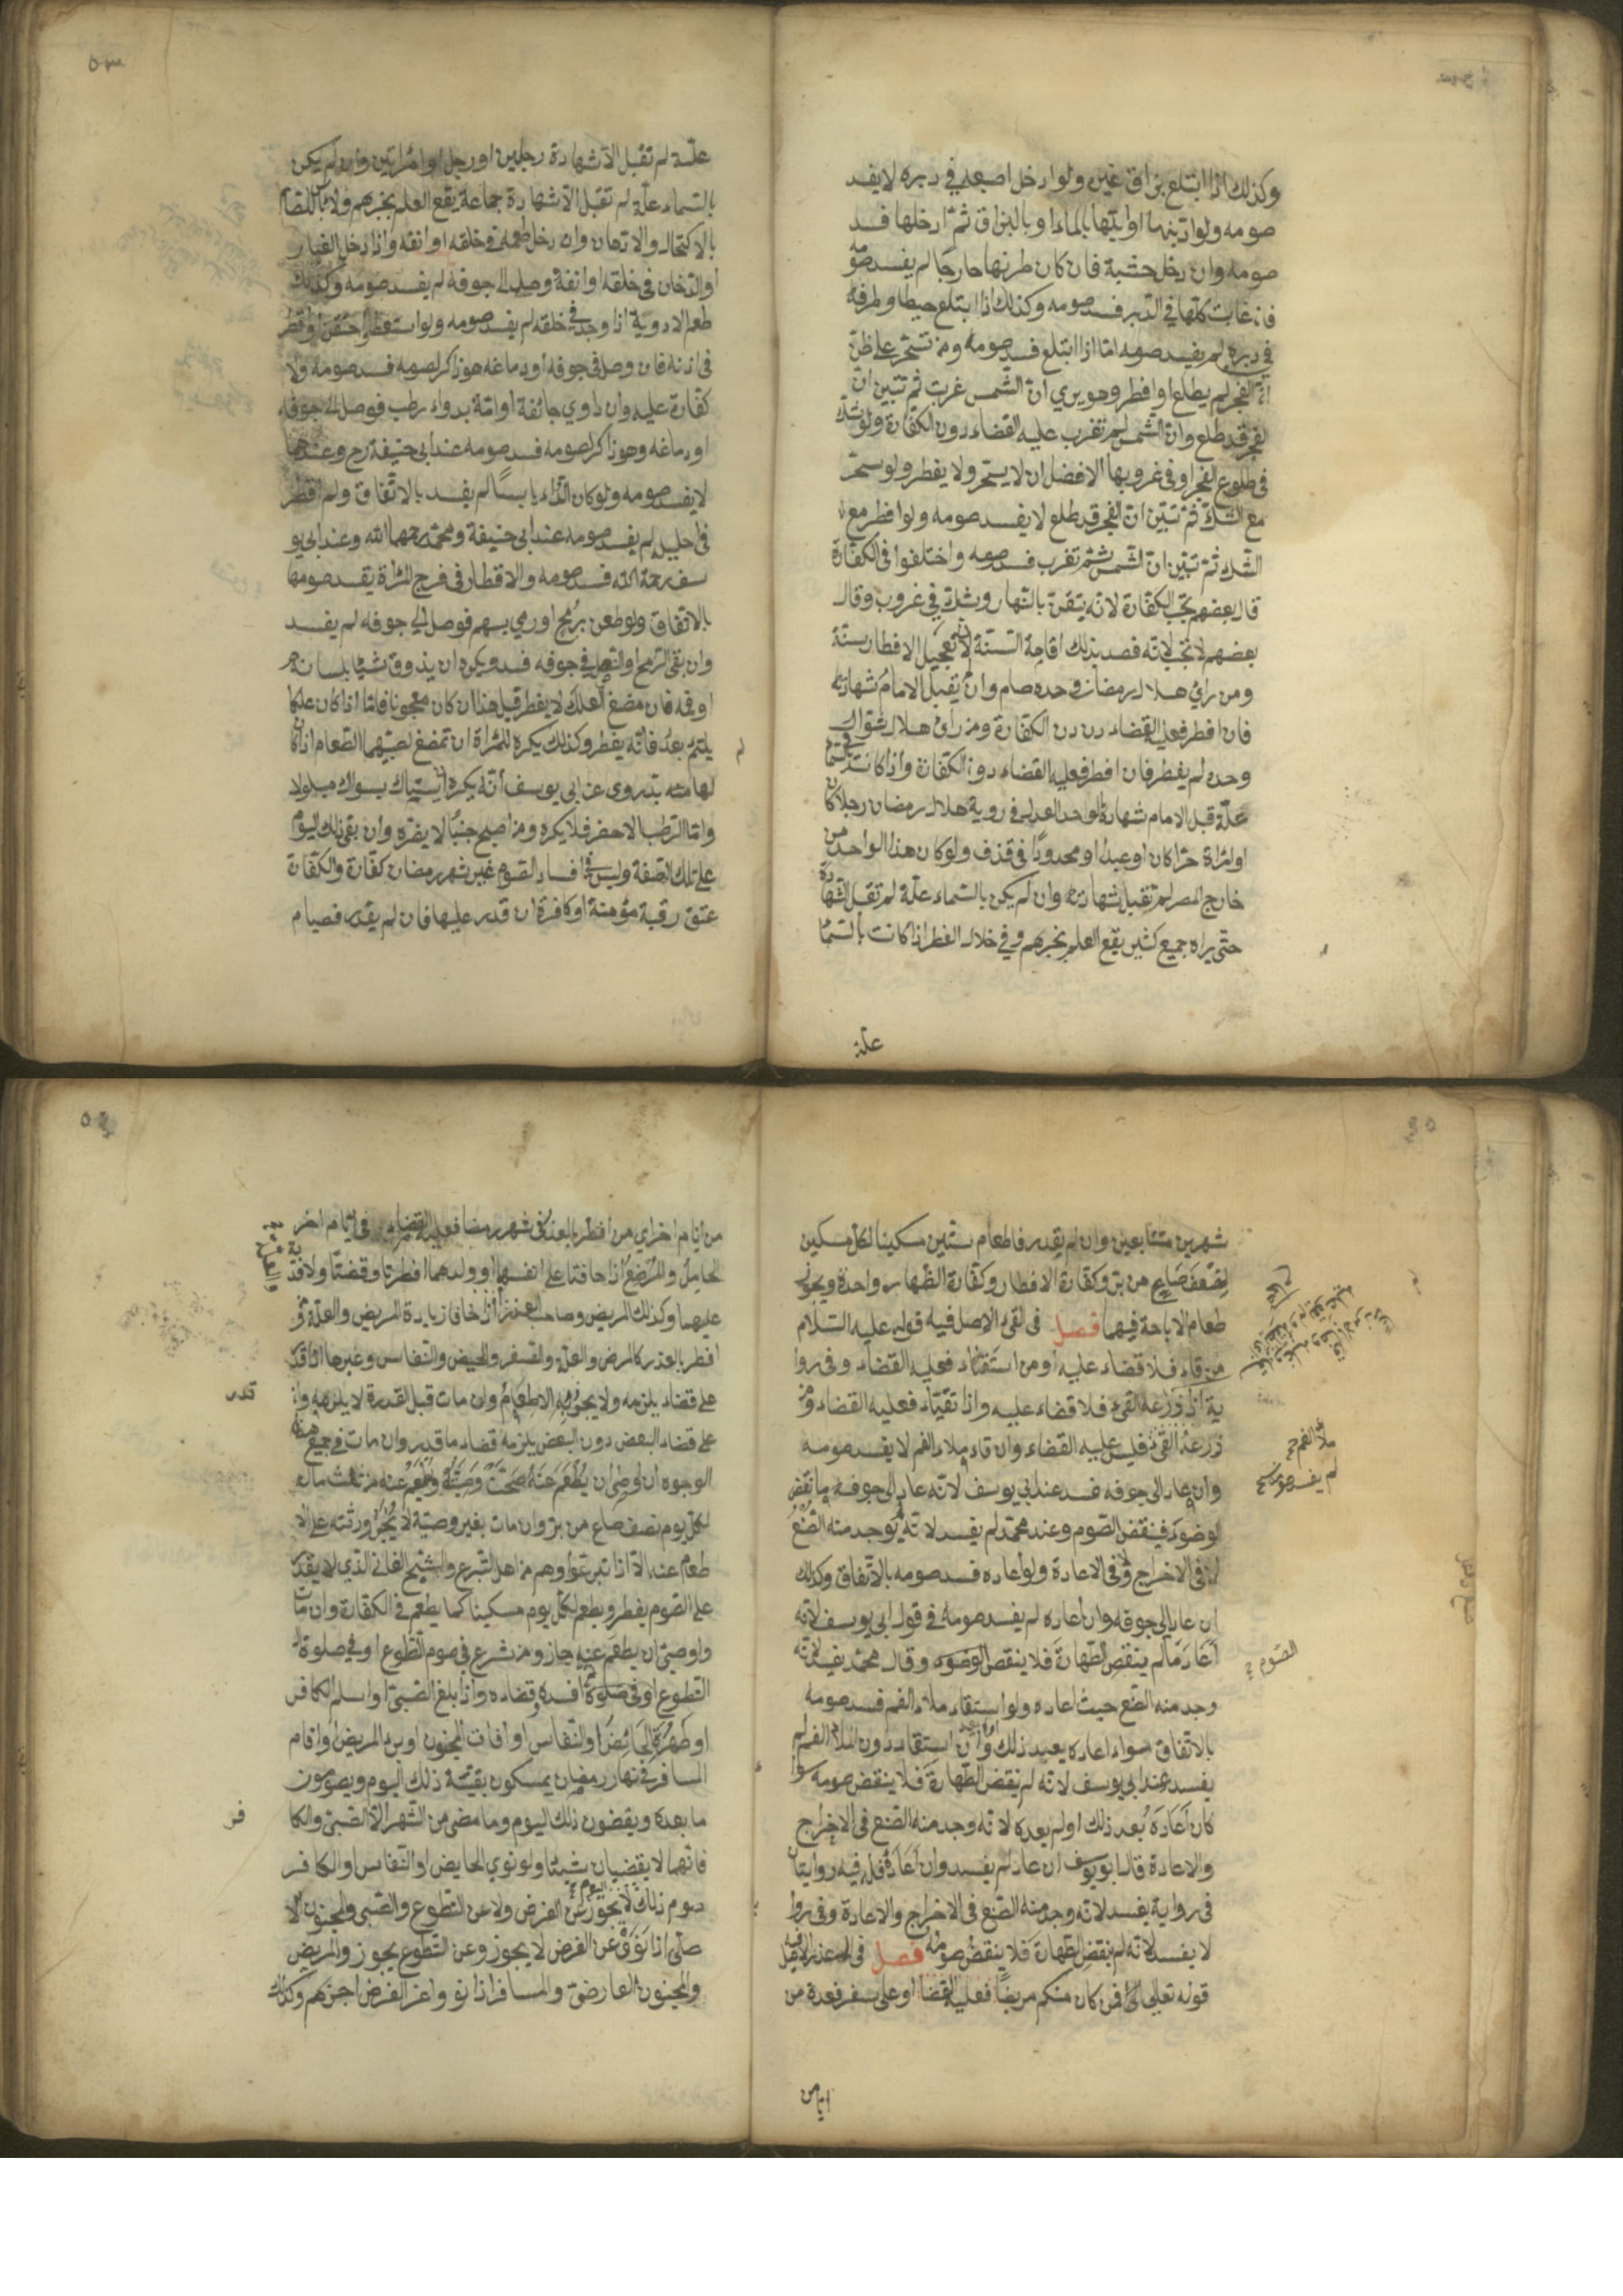 وكذلك اذا ابتلع بزاق غيره ولو ادخل اصبعه في دبره لا يفسد
صومه ولو ادهنها او بلها بالماء او بالبزاق ثم ادخلها فسد
صومه وان دخل خشبة فان كان طرفها خارجا لم يفسد صومه
فان غابت كلها في الدبر فسد صومه وكذلك اذا ابتلع خيطا وطرفه
في دبره لم يفسد صومه اما اذا ابتلع فسد صومه ومن تسحر على ظن
ان الفجر لم يطلع او افطر وهو يرى ان الشمس غربت ثم تبين ان
الفجر قد طلع وان الشمس لم تغرب عليه القضاء دون الكفارة ولو شك
في طلوع الفجر او في غروبها الافضل ان لا يسحر ولا يفطر ولو سحر
مع الشك ثم تبين ان الفجر قد طلع لا يفسد صومه ولو افطر مع
الشك ثم تبين ان الشمس لم تغرب فسد صومه واختلفوا في الكفارة
قال بعضهم تجب الكفارة لانه تيقن بالنهار وشك في غروب وقال
بعضهم لا تجب لانه قصد بذلك اقامة السنة لان تعجيل الافطار سنة
ومن رأى هلال رمضان وحده صام وان لم يقبل الامام شهادته
فان افطر فعليه القضاء دون الكفارة ومن رأى هلال شوال
وحده لم يفطر فان افطر فعليه القضاء دون الكفارة واذا كانت في سما
علة قبل الامام شهادة الواحد العدل في روية هلال رمضان رجلا كان
او امراة حرا كان او عبدا او محدودا في قذف ولو كان هذا الواحد من
خارج المصر لم تقبل شهادته وان لم يكن بالسماء علة لم تقبل الشهادة
حتى يراه جميع كثير يقع العلم بخبرهم وفي هلال الفطر اذا كانت بالسما
علة
علة لم تقبل الا شهادة رجلين او رجل او امراتين وان لم يكن
بالسماء علة لم تقبل الا شهادة جماعة يقع العلم بخبرهم ولا باس للصائم
بالاكتحال والادهان وان دخل طعمه في حلقه او انفه واذا دخل الغبار
او الدخان في حلقه او انفه وصل الى جوفه لم يفسد صومه وكذلك
طعم الادوية اذا وجد في حلقه لم يفسد صومه ولو استعط او احتقن او اقطر
في اذنه فان وصل في جوفه او دماغه هو ذاكر لصومه فسد صومه ولا
كفارة عليه وان داوى جائفة او امة بدواء رطب فوصل الى جوفه
او دماغه وهو ذاكر لصومه فسد صومه عند ابي حنيفة رح وعندهما
لا يفسد صومه ولو كان الدواء يابسا لم يفسد بالاتفاق ولو اقطر
في احليله لم يفسد صومه عند ابي حنيفة ومحمد رحمهما الله وعند ابي يو
سف رحمة الله فسد صومه والاقطار في فرج المراة يفسد صومها
بالاتفاق ولو طعن برمح او رمي بسهم فوصل الى جوفه لم يفسد
وان بقي الرمح او النصل في جوفه فسد ويكره ان يذوق شيئا بلسانه
او فمه فان مضغ العلك لا يفطر قيل هذا ان كان معجونا فاما اذا كان علكا
يلتئم بعد فانه يفطر وكذلك يكره للمراة ان تمضغ لصبيها الطعام اذا كان
لها منه بد روي عن ابي يوسف انه يكره ان يستاك بسواك مبلولا
واما الرطب الاخضر فلا يكره ومن اصبح جنبا لا يضره وان بقي ذلك اليوم
على تلك الصفة وليس في افساد الصوم غير شهر رمضان كفارة والكفارة
عتق رقبة مؤمنة او كافرة ان قدر عليها فان لم يقدر فصيام
شهرين متتابعين وان لم يقدر فاطعام ستين مسكينا لكل مسكين
نصف صاع من بر وكفارة الافطار وكفارة الظهار واحدة ويجوز
طعام الاباحة فيها فصل في القيء الاصل فيه قوله عليه السلام
من قاء فلا قضاء عليه ومن استقاء فعليه القضاء وفي روا
ية اذا ذرعه القيء فلا قضاء عليه واذا تقياء فعليه القضاء ومن
ذرعه القيء فليس عليه القضاء وان قاء ملاء الفم لا يفسد صومه
وان عاد الى جوفه فسد عند ابي يوسف لانه عاد الى جوفه ما نقض
الوضوء فينقض الصوم وعند محمد لم يفسد لانه لم يوجد منه الصنع
لا في الاخراج ولا في الاعادة ولو اعاده فسد صومه بالاتفاق وكذلك
ان عاد الى جوفه وان اعاده لم يفسد صومه في قول ابي يوسف لانه
اعاد ما لم ينقض الطهارة فلا ينقض الوضوء وقال محمد يفسد لانه
الصوم
وجد منه الصنع حيث اعاده ولو استقاء ملاء الفم فسد صومه
بالاتفاق سواء اعاده بعد ذلك او لا وان استقاء دون الملاء الفم لم
يفسد عند ابي يوسف لانه لم ينقض الطهارة فلا ينقض صومه سوا
كان اعاده بعد ذلك او لم يعده لانه وجد منه الصنع في الاخراج
والاعادة قال ابو يوسف ان عاد لم يفسد وان اعاده فله فيه روايتان
في رواية يفسد لانه وجد منه الصنع في الاخراج والاعادة وفي روا
لا يفسد لانه لم ينقض الطهارة فلا ينقض صومه فصل في العذر الاصل فيه
قوله تعالى فمن كان منكم مريضا فعليه القضا او على سفر فعدة من
ملأ الفم
لم يفسد صومه
ايام
من ايام اخر اي من افطر بالعذر في شهر رمضا فعليه القضاء في ايام اخر
الحامل والمرضع اذا خافتا على انفسهما او ولدهما افطرتا وقضتا ولا فد
عليهما وكذلك المريض وصاحب العذر اذا خافا زيادة المرض والعلة ومن
افطر بالعذر كالمرض والعلة والسفر والحيض والنفاس وغيرها اذا قد
على قضاء يلزمه ولا يجوز فيه الاطعام وان مات قبل القدرة لا يلزمه وان
قدر
على قضاء البعض دون البعض يلزمه قضاء ما قدر وان مات في جميع هذه
الوجوه ان اوصى ان يطعم عنه صحت وصيته ويطعم عنه من ثلث ماله
لكل يوم نصف صاع من بر وان مات بغير وصية لا يجبر ورثته على الا
طعام عنه الا اذا تبرعوا وهم من اهل التبرع والشيخ الفاني الذي لا يقدر
على الصوم يفطر ويطعم لكل يوم مسكينا كما يطعم في الكفارة وان مات
واوصى ان يطعم عنه جاز ومن شرع في صوم التطوع او في صلوة
التطوع او في صلوة ثم افسده قضاه واذا بلغ الصبي او اسلم الكافر
او طهرت الحائض او النفاس او افاق المجنون او برء المريض او اقام
المسافر في نهار رمضان يمسكون بقية ذلك اليوم ويصومون
ما بعده ويقضون ذلك اليوم وما مضى من الشهر الا الصبي والكا
فر
فانهما لا يقضيان شيئا ولو نوى الحايض او النفاس او الكافر
صوم ذلك اليوم لا يجوز عن الفرض ولا عن التطوع والصبي والمجنون الا
صلي اذا نوى عن الفرض لا يجوز وعن التطوع يجوز والمريض
والمجنون العارض والمسافر اذا نووا عن الفرض اجزاهم وكذلك